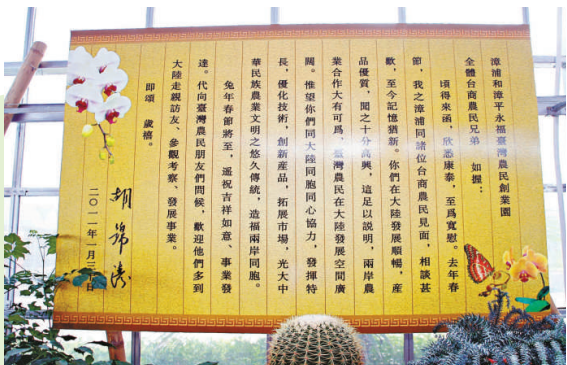 漳浦和漳平永福臺灣農民創業園
全體台商農民兄弟 如握：
頃得來函，欣悉康泰，至爲寬慰。去年春
節，我之漳浦同諸位台商農民見面，相談甚
歡，至今記憶猶新。你們在大陸發展順暢，產
品優質，聞之十分高興，這足以說明，兩岸農
業合作大有可爲，臺灣農民在大陸發展空間廣
闊。惟望你們同大陸同胞同心協力，發揮特
長，優化技術，創新產品，拓展市場，光大中
華民族農業文明之悠久傳統，造福兩岸同胞。
兔年春節將至，遥祝吉祥如意、事業發
達。代向臺灣農民朋友們問候，歡迎他們多到
大陸走親訪友、參觀考察、發展事業。
即頌 歲禧。
胡錦濤
二〇一一年一月三十日